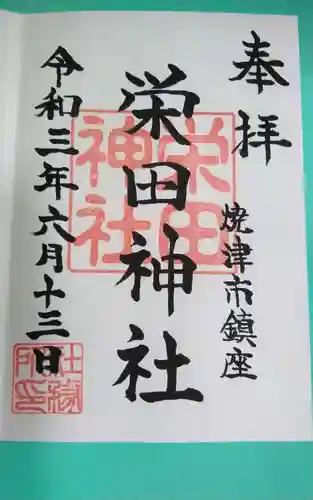 奉拝
焼津市鎮座
栄田神社
栄田神社
令和三年六月十三日